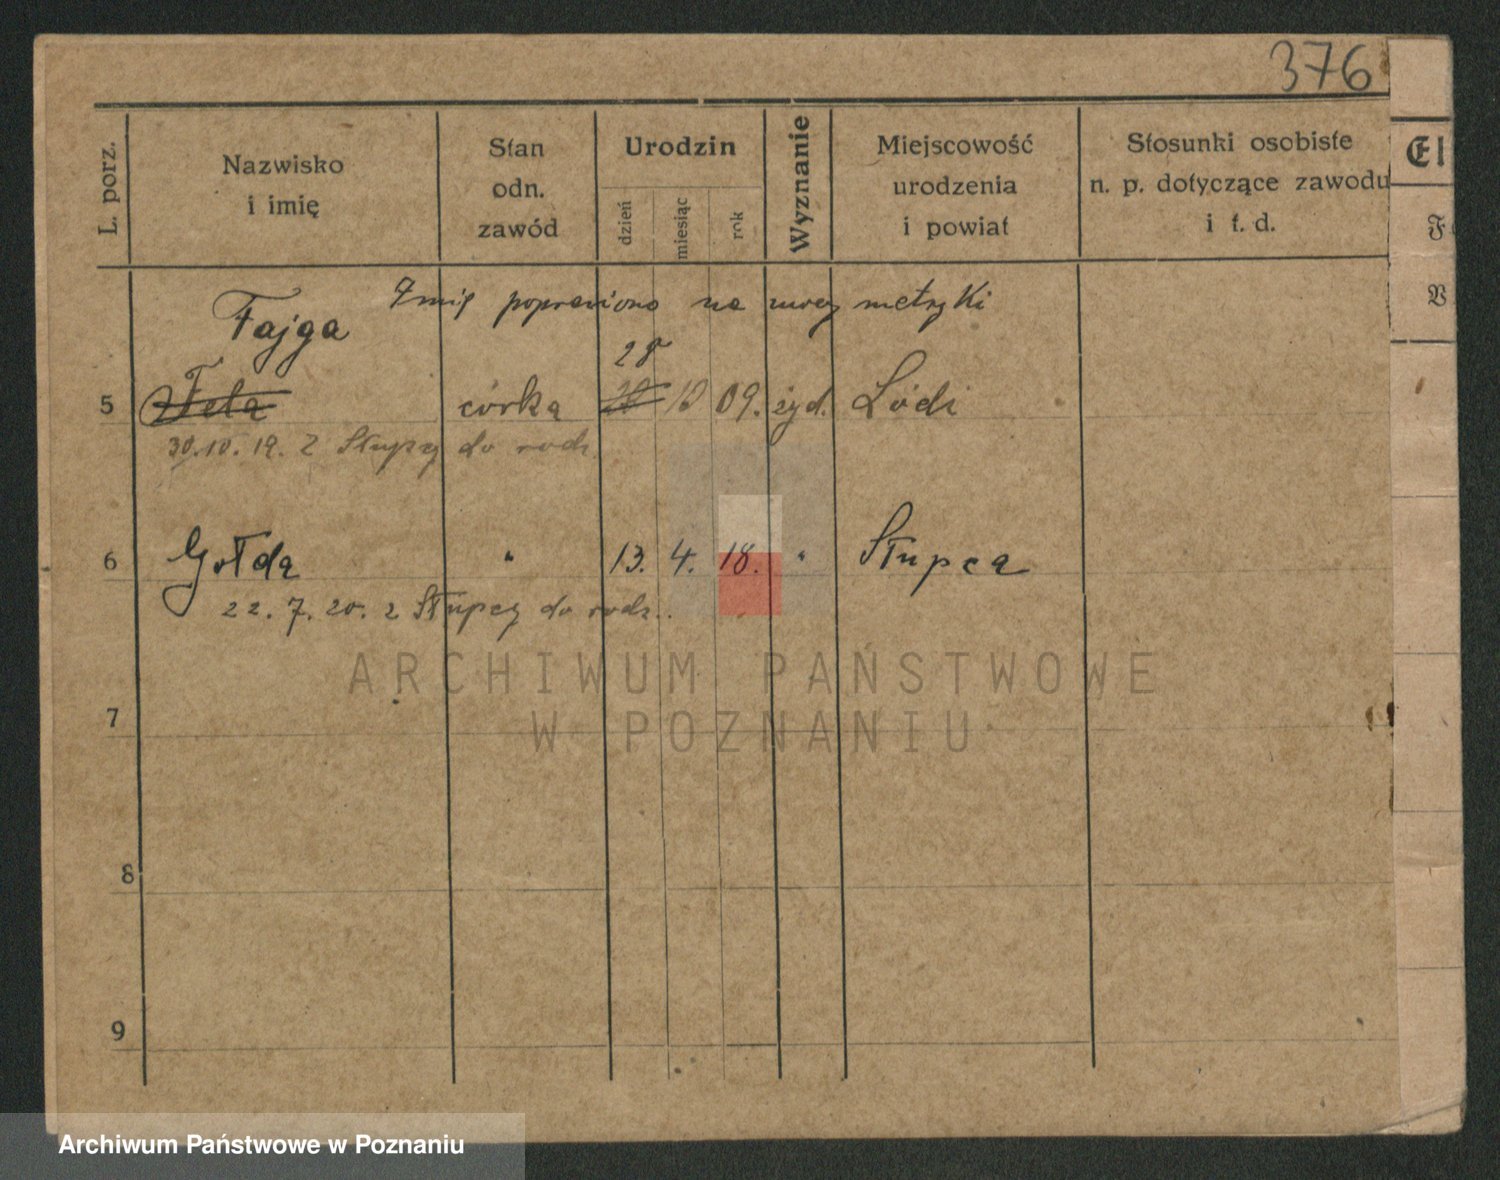 376
L. porz.
Nazwisko
i imię
Stan
odn.
zawód
Urodzin
dzień
miesiąc
rok
Wyznanie
Miejscowość
urodzenia
i powiat
Stosunki osobiste
n. p. dotyczące zawodu
i t. d.
El
F
V
Imię poprawiono na mocy metryki
Fajga
28
5 Fela córka 10 09. żyd. Łódź
30.10.19. z Słupcy do rodz.
6 Gołda " 13. 4. 18. " Słupca
22. 7. 20. z Słupcy do rodz..
7
8
9
ARCHIWUM PAŃSTWOWE
W POZNANIU
Archiwum Państwowe w Poznaniu